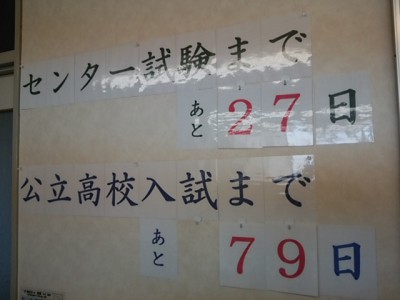 センター試験まで
あと27日
公立高校入試まで
あと79日